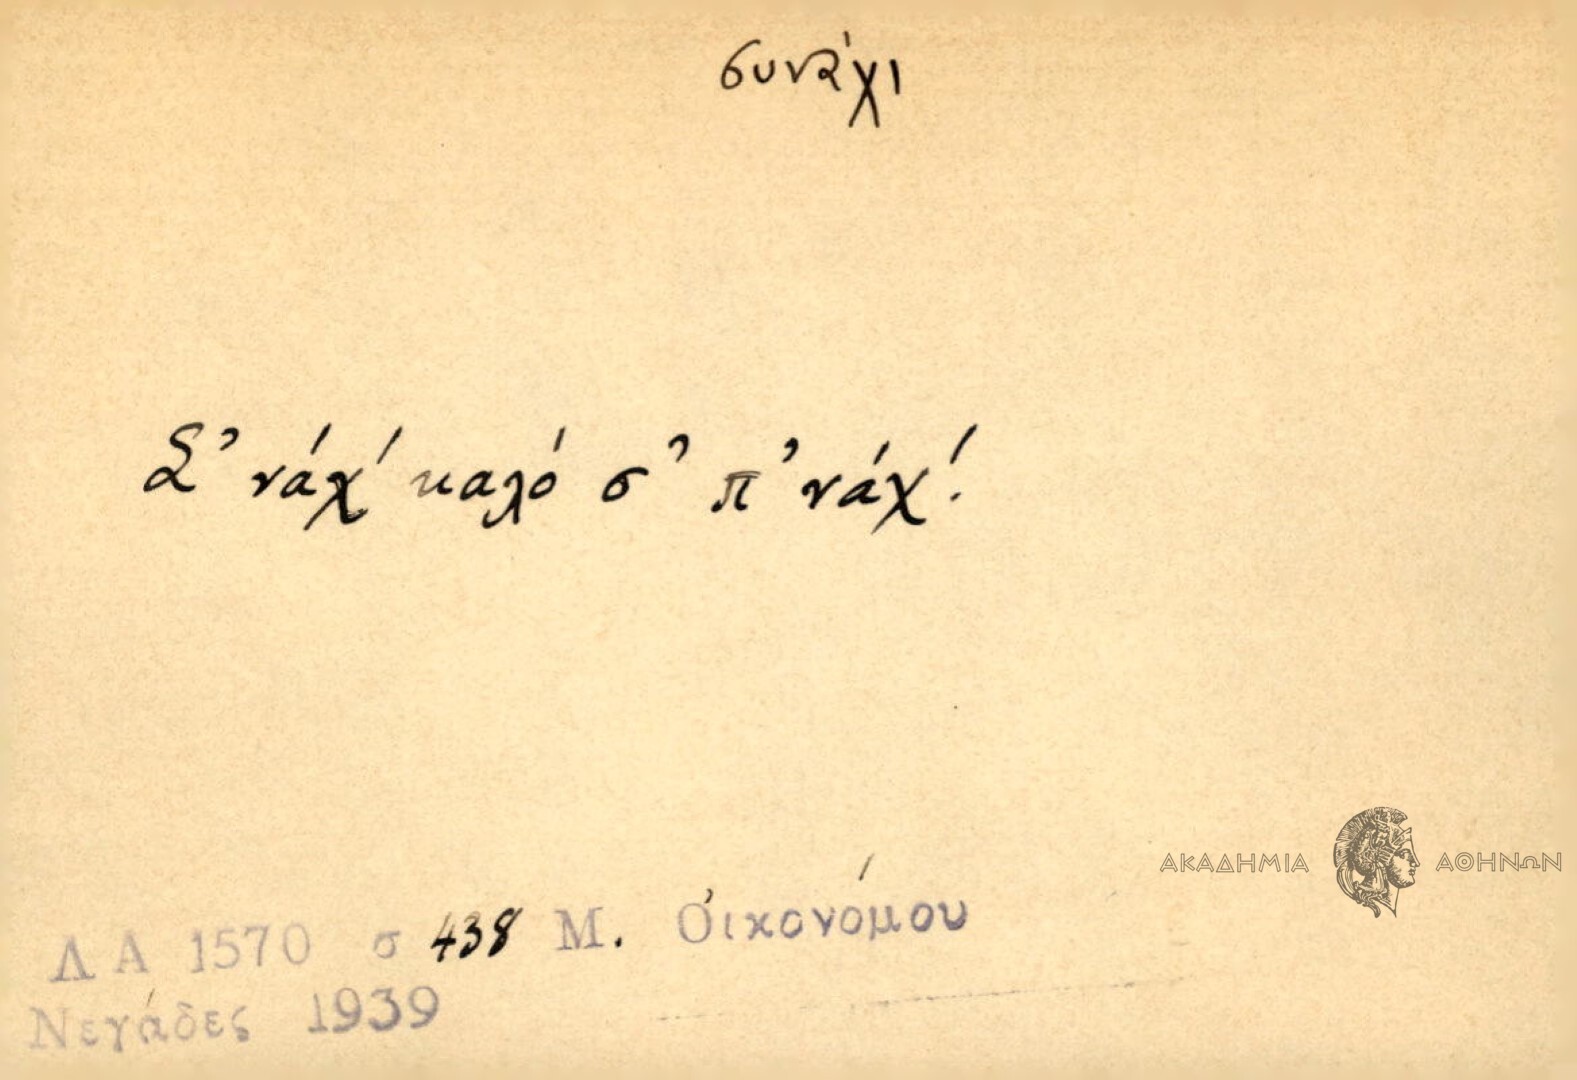 συνάχι
Σ' νάχ' καλό σ' π' νάχ'!
ΑΚΑΔΗΜΙΑ ΑΘΗΝΩΝ
Λ Α 1570 σ 438 Μ. Οἰκονόμου
Νεγάδες 1939